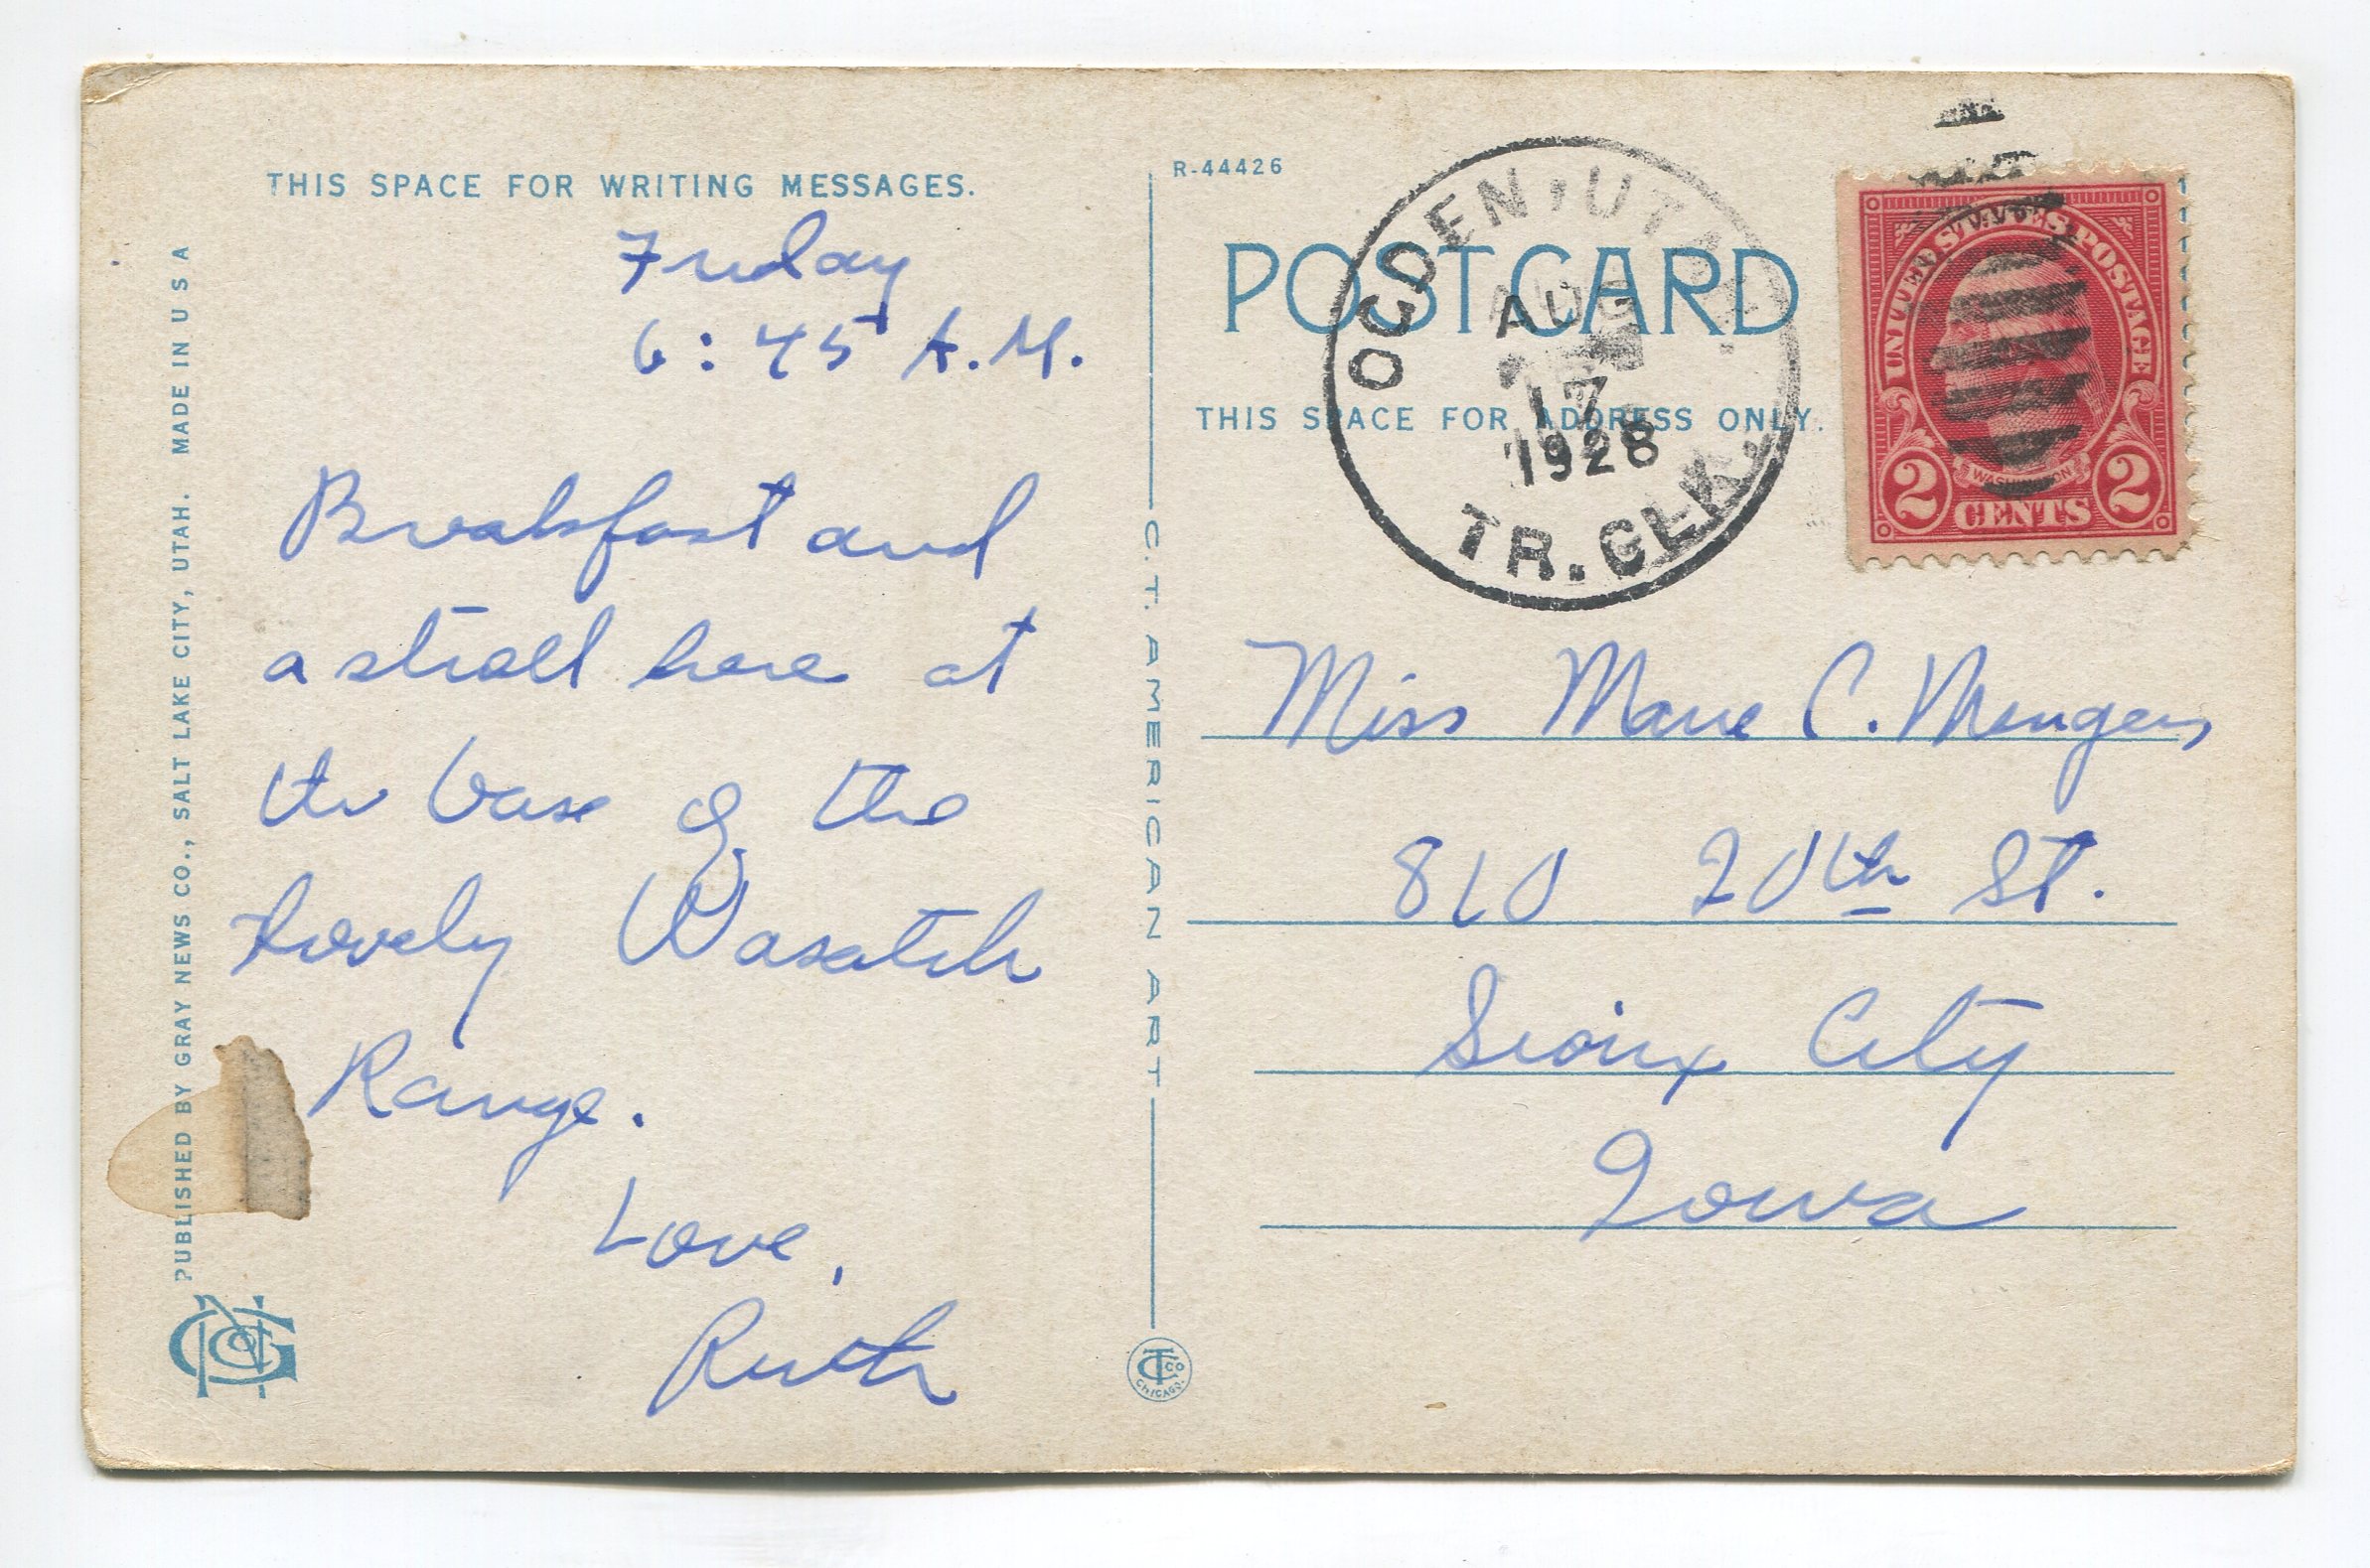 THIS SPACE FOR WRITING MESSAGES.
Friday
6:45 A.M.
Breakfast and
a stroll here at
the base of the
lovely Wasatch
Range.
Love,
Ruth
PUBLISHED BY GRAY NEWS CO., SALT LAKE CITY, UTAH. MADE IN U S A
C. T. AMERICAN ART
CT CO
CHICAGO.
R-44426
POST CARD
THIS SPACE FOR ADDRESS ONLY.
OGDEN, UTAH
AUG
17
1928
TR. CLK.
UNITED STATES POSTAGE
WASHINGTON
2 CENTS 2
Miss Marie C. Mengens
810 20th St.
Sioux City
Iowa